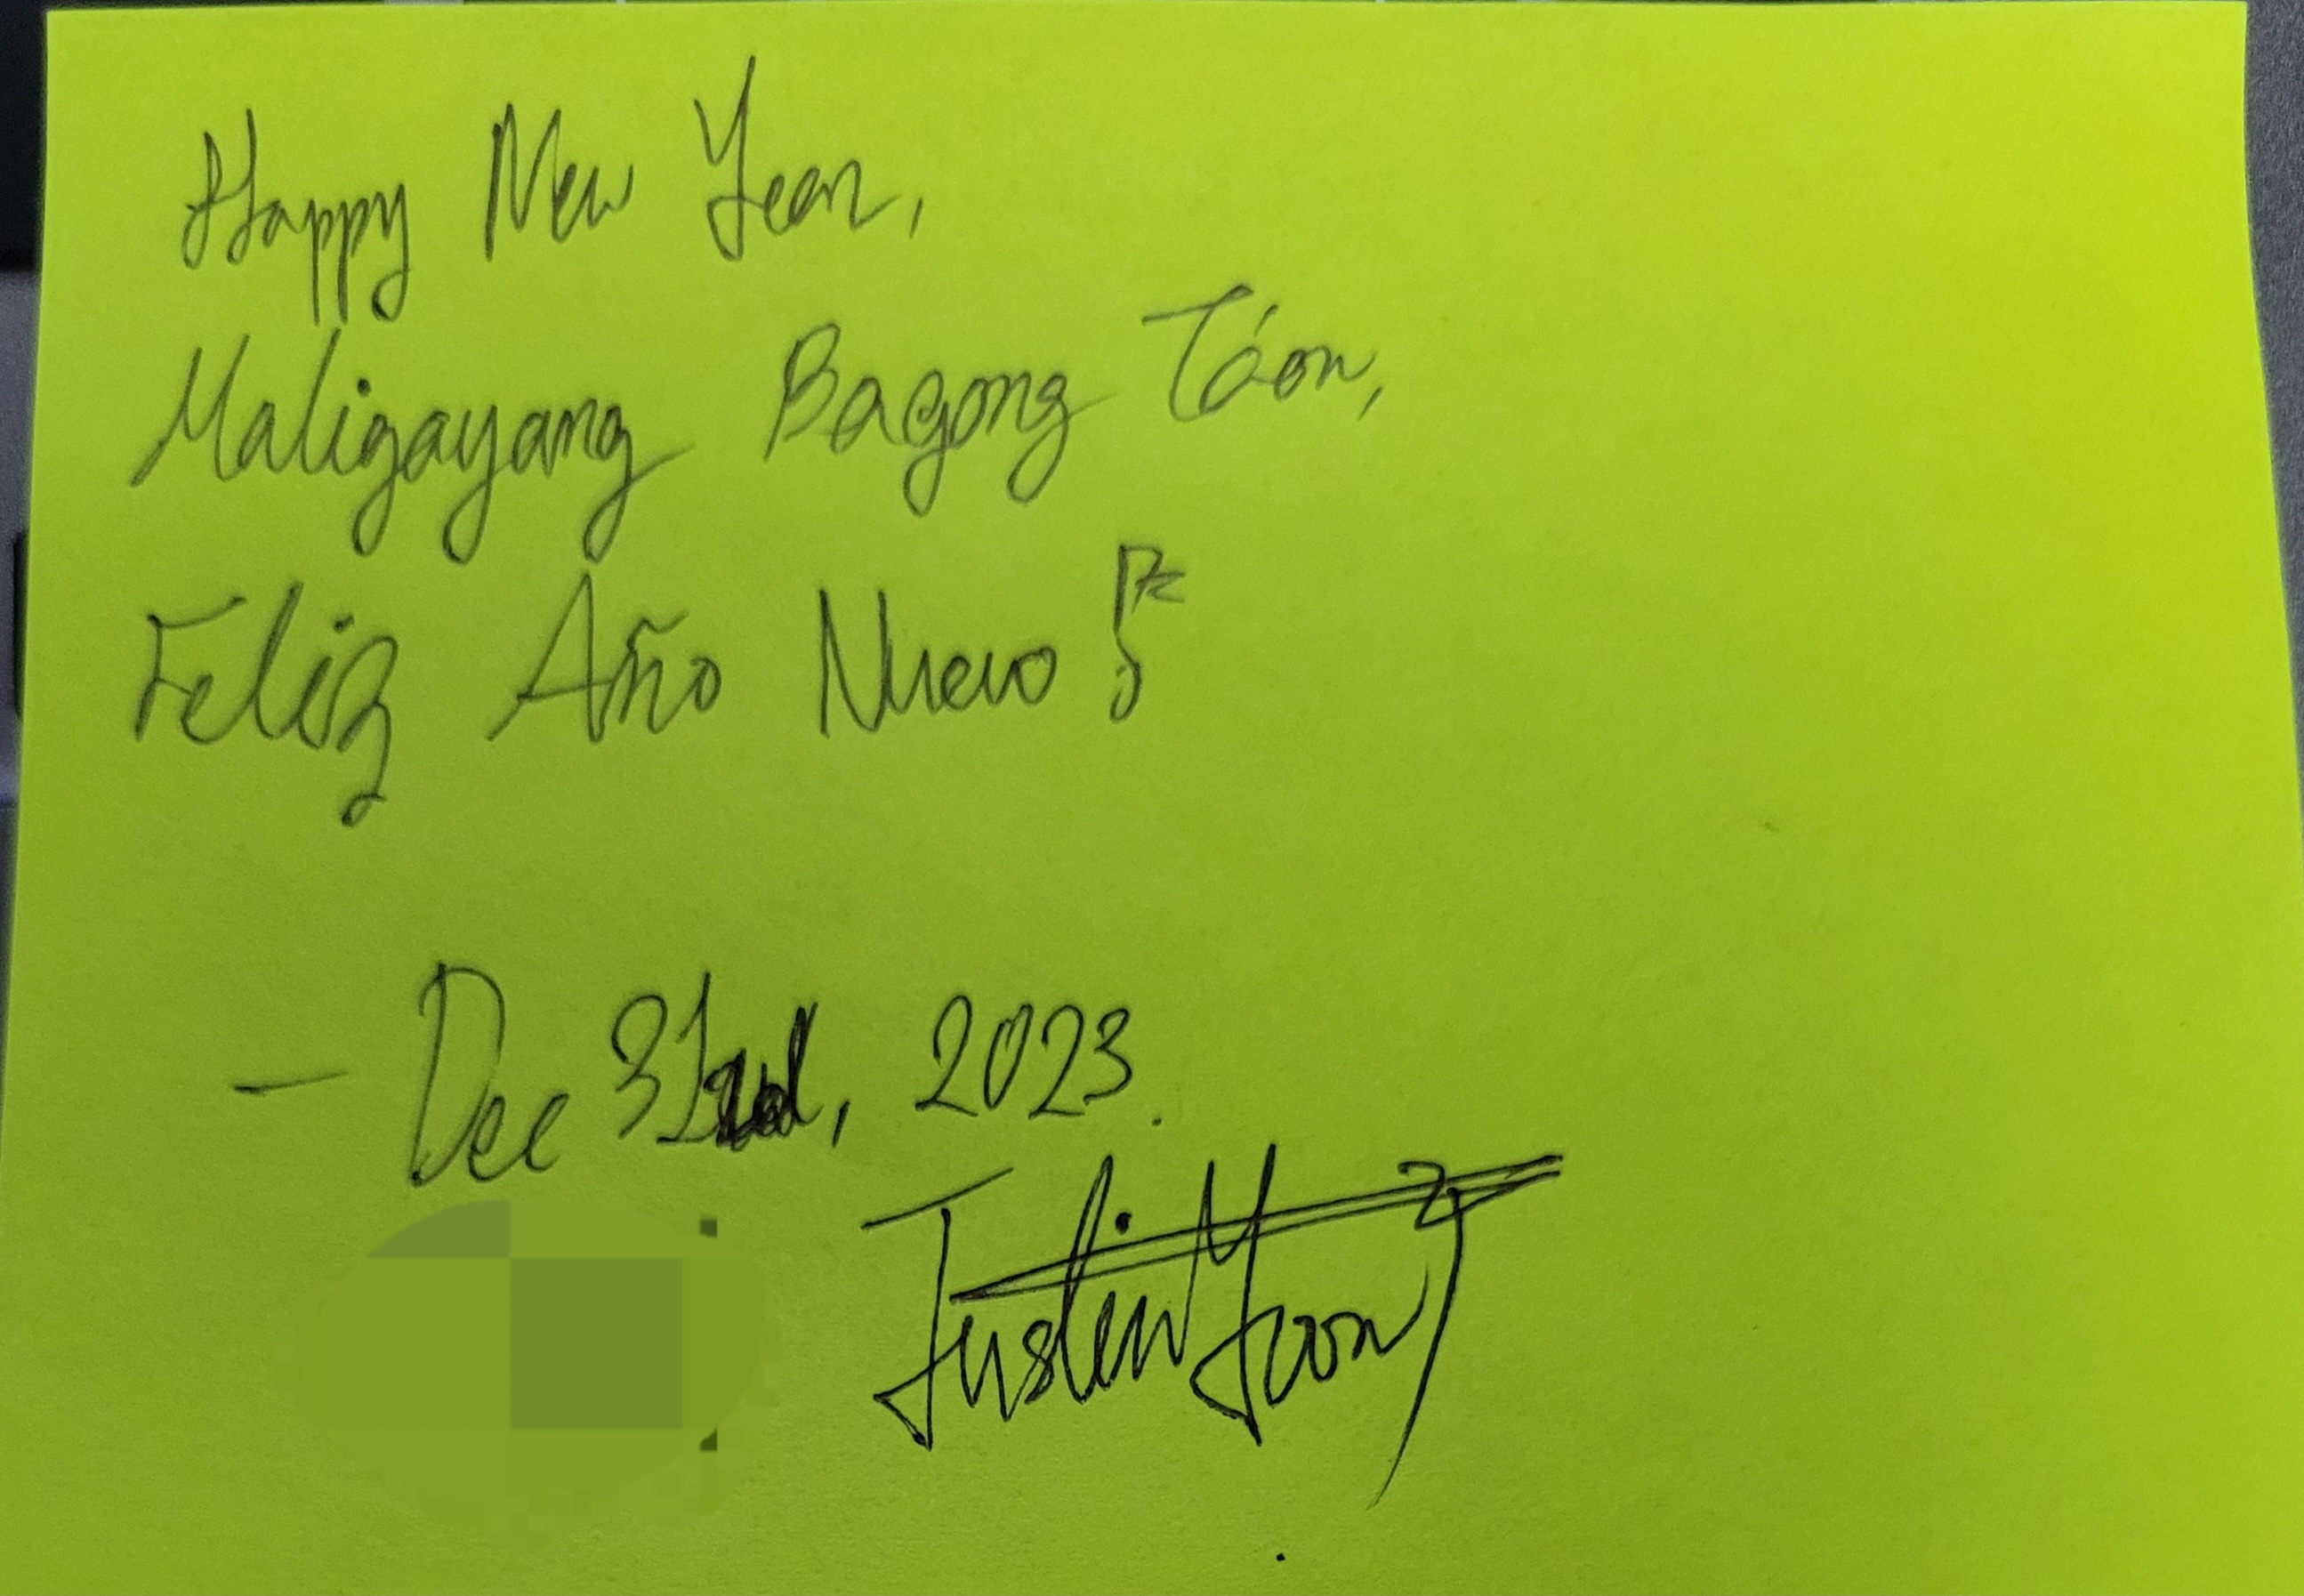 Happy New Year,
Maligayang Bagong Táon,
Feliz Año Nuevo!
— Dec 31, 2023.
Justin Yoon